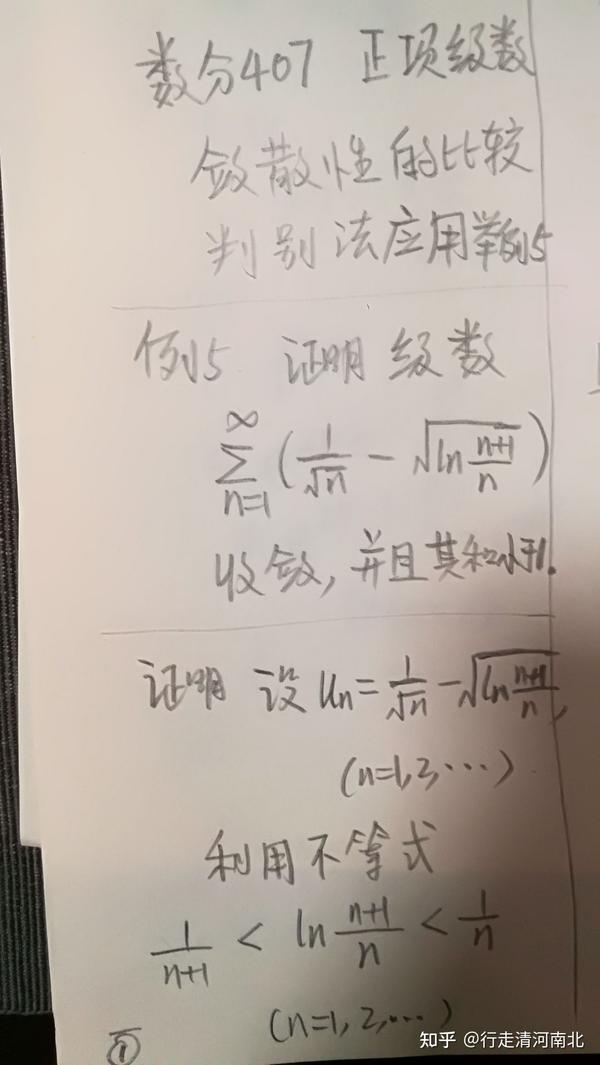 数分407 正项级数
敛散性的比较
判别法应用举例5
例5 证明级数
∑_{n=1}^{∞}(1/√n - √(ln (n+1)/n))
收敛,并且其和小于1.
证明 设 Un = 1/√n - √(ln (n+1)/n),
(n=1,2,···)
利用不等式
1/(n+1) < ln (n+1)/n < 1/n
(n=1,2,···)
①
知乎 @行走清河南北